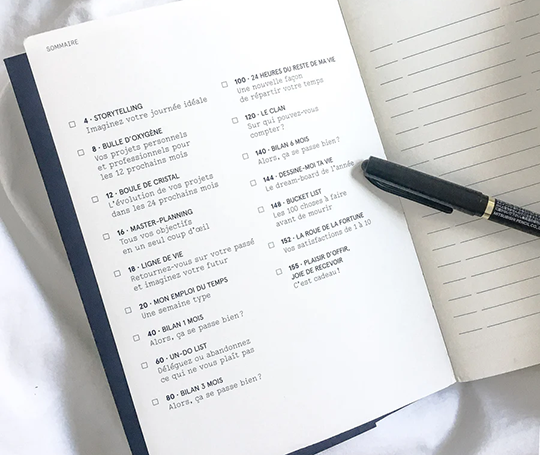 SOMMAIRE
4 - STORYTELLING
Imaginez votre journée idéale
8 - BULLE D'OXYGÈNE
Vos projets personnels
et professionnels pour
les 12 prochains mois
12 - BOULE DE CRISTAL
L'évolution de vos projets
dans les 24 prochains mois
16 - MASTER-PLANNING
Tous vos objectifs
en un seul coup d'œil
18 - LIGNE DE VIE
Retournez-vous sur votre passé
et imaginez votre futur
20 - MON EMPLOI DU TEMPS
Une semaine type
40 - BILAN 1 MOIS
Alors, ça se passe bien ?
60 - UN-DO LIST
Déléguez ou abandonnez
ce qui ne vous plaît pas
80 - BILAN 3 MOIS
Alors, ça se passe bien ?
100 - 24 HEURES DU RESTE DE MA VIE
Une nouvelle façon
de répartir votre temps
120 - LE CLAN
Sur qui pouvez-vous
compter ?
140 - BILAN 6 MOIS
Alors, ça se passe bien ?
144 - DESSINE-MOI TA VIE
Le dream-board de l'année
148 - BUCKET LIST
Les 100 choses à faire
avant de mourir
152 - LA ROUE DE LA FORTUNE
Vos satisfactions de 1 à 10
155 - PLAISIR D'OFFRIR,
JOIE DE RECEVOIR
C'est cadeau !
MITSUBISHI PENCIL CO.